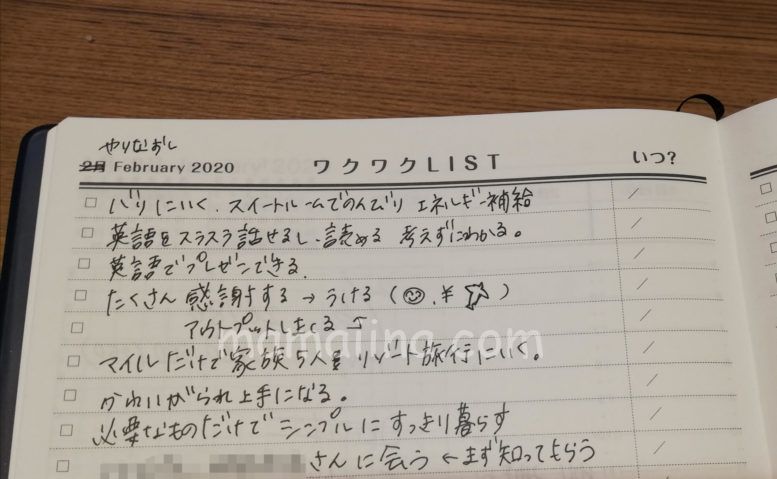 やりなおし
2月 February 2020 ワクワクLIST いつ?
バリにいく、スイートルームでのんびり エネルギー補給 /
英語をスラスラ話せるし、読める 考えずにわかる。 /
英語でプレゼンできる. /
たくさん 感謝する → うける ( ☺.¥ ) /
アウトプットしまくる /
マイルだけで家族5人を リゾート旅行にいく。 /
かわいがられ上手になる。 /
必要なものだけでシンプルにすっきり暮らす /
さんに会う ← まず知ってもらう /
mamajina.com